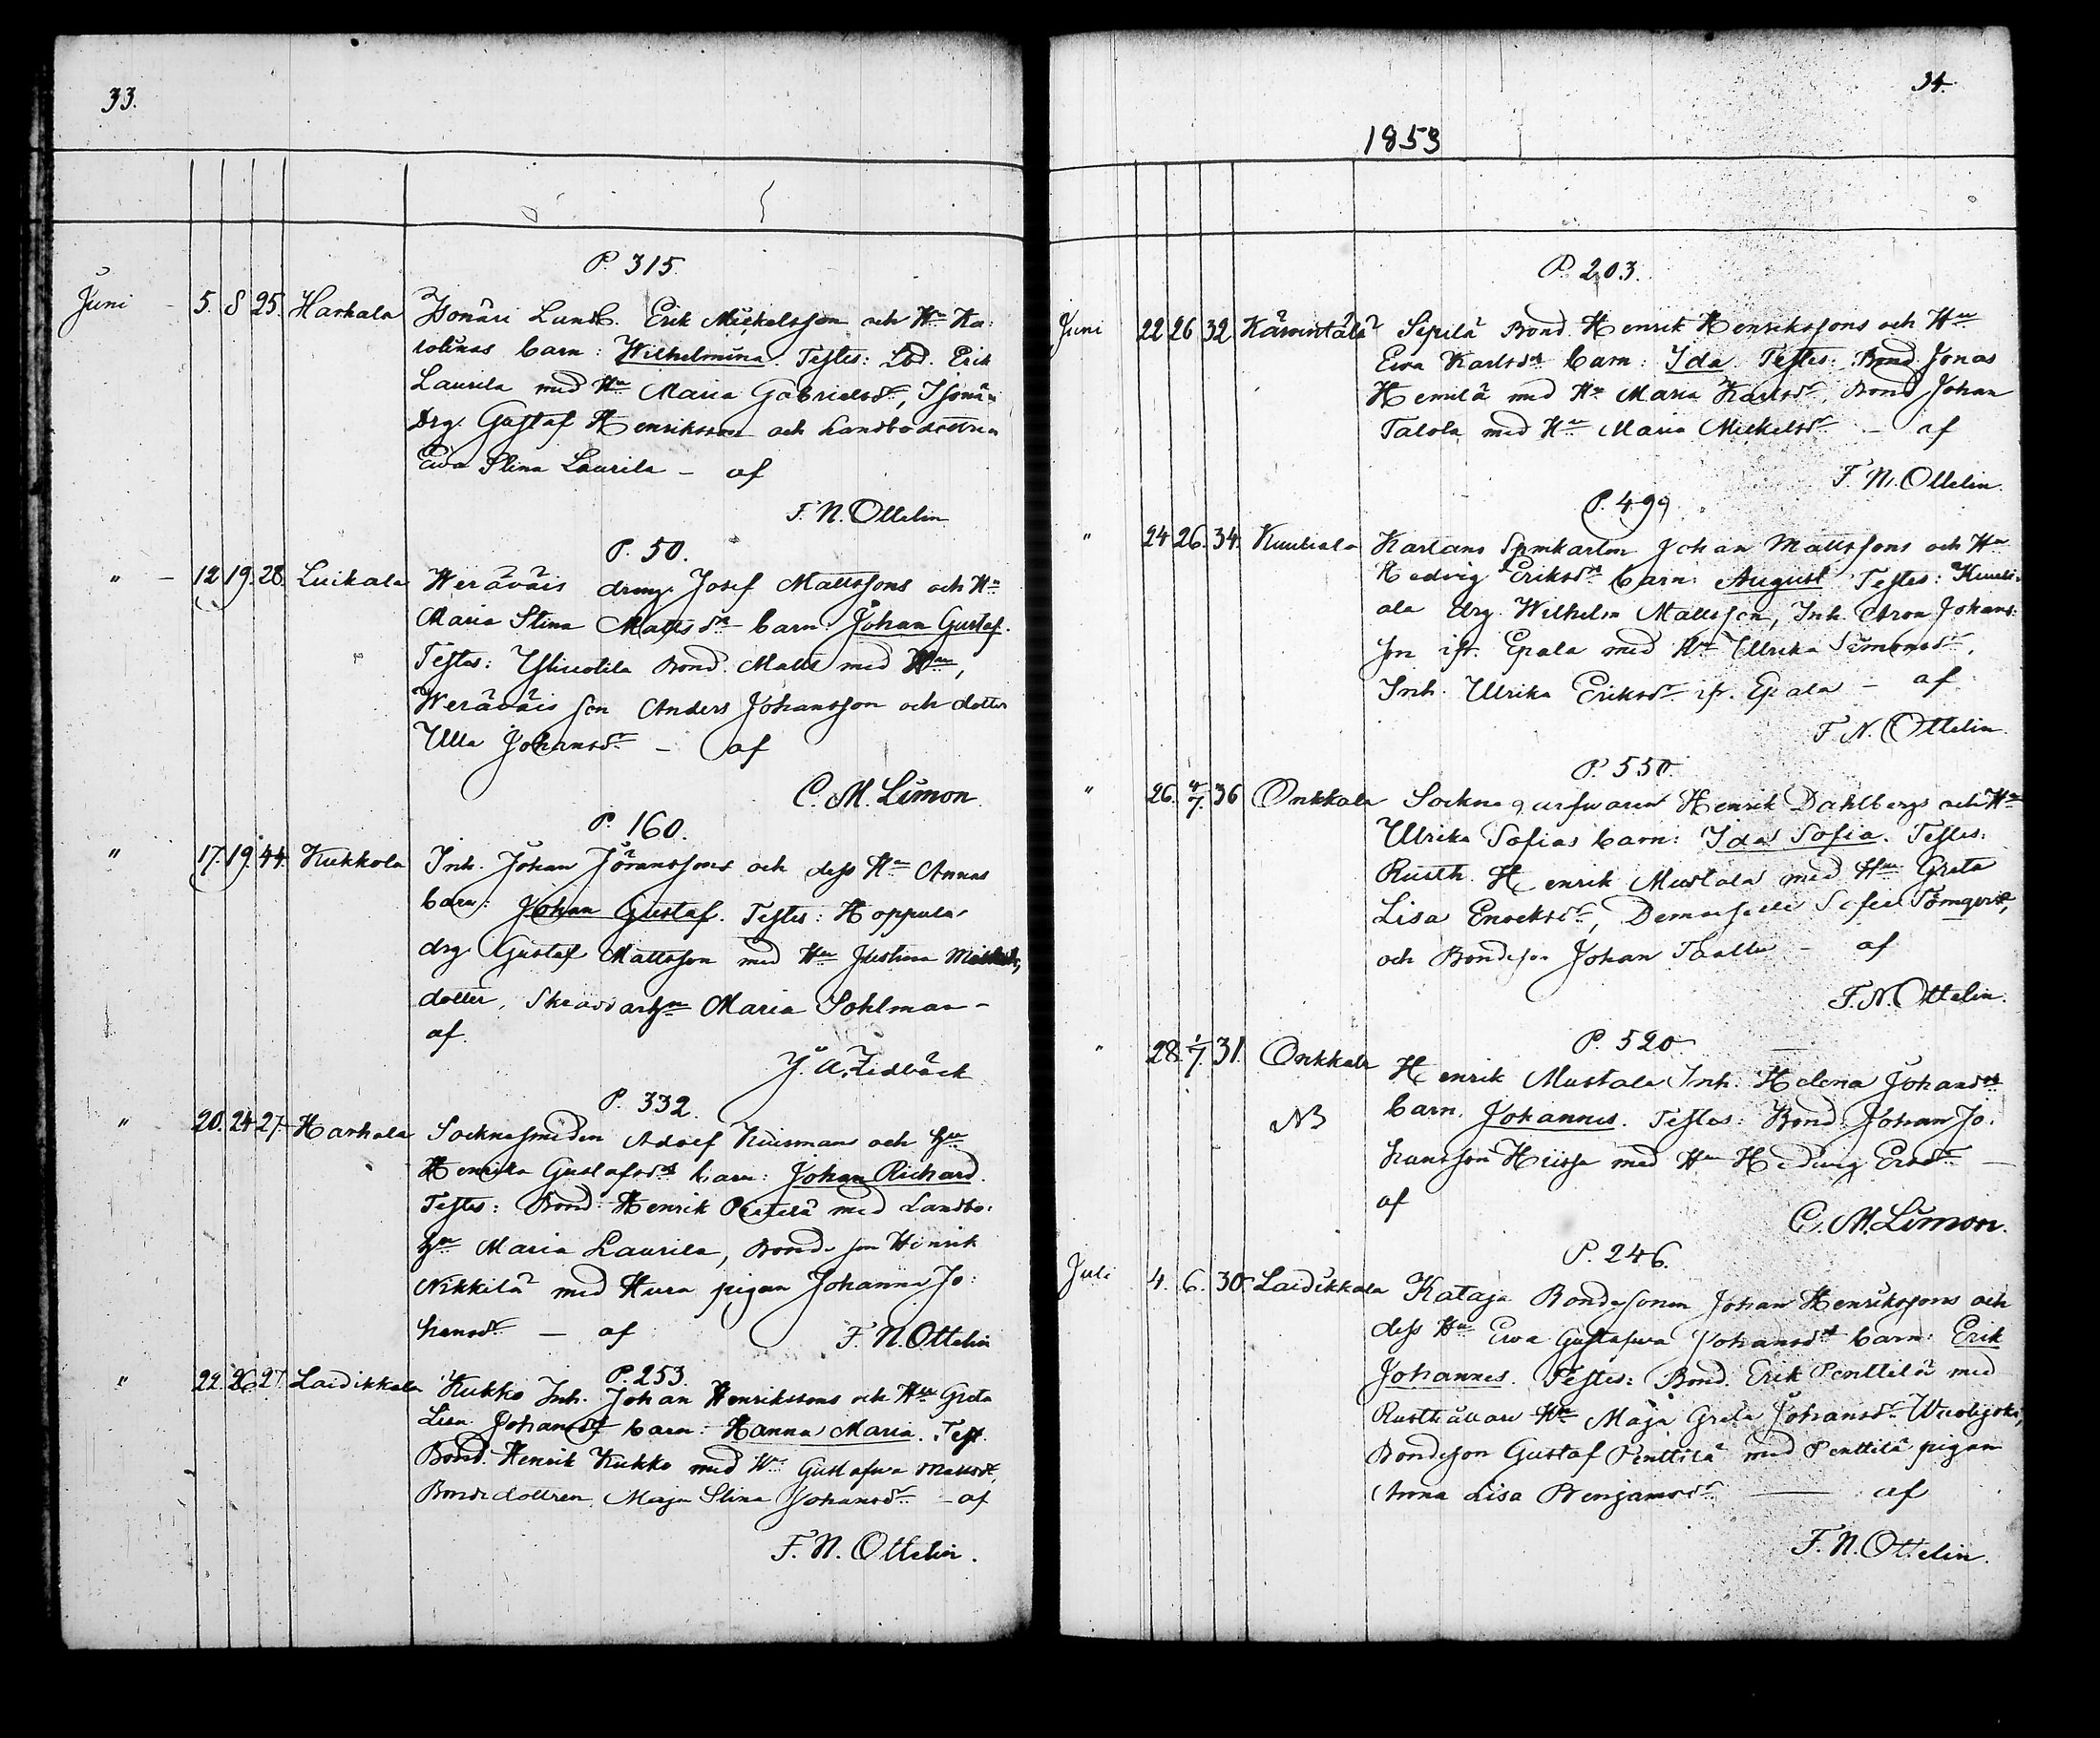 33.
P. 315.
Juni - 5. 8 25. Harhala Isonäri Landb. Erik Mickelsson och Hu Ka:
rolinas barn: Wilhelmina. Testes: Lbd. Erik
Laurila med Hu Maria Gabrielsdr, Isonäri
Drg. Gustaf Henriksson och Landbodottren
Ewa Stina Laurila - af
F. N. Ottelin
P. 50.
" - 12 19. 28. Luikala Weräväis dreng. Josef Mattssons och Hu
Maria Stina Mattsdrs barn: Johan Gustaf.
Testes: Bond. Matts med Hu,
Weräväis son Anders Johansson och dotter
Ulla Johansdr - af
C. M. Limon.
P. 160.
" 17. 19. 44. Kukkola Inh. Johan Jöranssons och dess Hu Annas
barn: Johan Gustaf. Testes: Hoppula
drg Gustaf Mattsson med Hu Justina
dotter, Skräddarhu Maria Sohlman -
af.
J. A. Zidbäck
P. 332.
" 20. 24 27. Harhala Socknesmeden Adolf Kuismans och hu
Henrika Gustafsdrs barn: Johan Richard.
Testes: Bond: Henrik Penttilä med Landbo:
hu Maria Laurila, Bondeson Henrik
Nikkilä med Hura pigan Johanna Jo:
hansdr. - af F. N. Ottelin
P. 253.
" 22. 26 27 Laidikkala Kukko Inh. Johan Henrikssons och Hu Greta
Lisa Johansdrs barn: Hanna Maria. Test.
Bond. Henrik Kukko med Hu Gustafwa Mattsdr.
Bondedottren Maja Stina Johansdr. - af
F. N. Ottelin.
34.
1853
P. 203.
Juni 22 26 32 Kämmälä Sipilä Bond. Henrik Henrikssons och Hu
Ewa Karlsdrs barn: Ida. Testes: Bond. Jonas
Hemilä med Hu Maria Karlsdr. Bond Johan
Talola med Hu Maria Mickelsdr - af
F. N. Ottelin.
P. 499.
" 24 26. 34. Kuuliala Karlans Spnkarlen Johan Mattssons och Hu
Hedvig Eriksdrs barn: August Testes: Kuuli:
ala drg. Wilhelm Mattsson, Inh. Aron Johans:
son ifr. Epala med Hu Ullrika Simonsdr.
Inh. Ulrika Eriksdr ifr. Epala - af
F. N. Ottelin.
P. 550.
" 26. 4/7. 36 Onkkala Sockne garfwaren Henrik Dahlbergs och Hu
Ulrika Sofias barn: Ida Sofia. Testes:
Rusth. Henrik Mustala med Hu Greta
Lisa Enocksdr, Demoiselle Sofie
och Bondeson Johan - af
F. N. Ottelin.
P. 520
" 28. 1/7. 31. Onkkala Henrik Mustala Inh. Helena Johansdrs
NB barn. Johannes. Testes: Bond. Johan Jo:
hansson Hiisja med Hu Hedwig Ersdr -
af
C. M. Limon.
P. 246.
Juli 4. 6. 30 Laidikkala Kataja Bondesonen Johan Henrikssons och
dess Hu Ewa Gustafwa Johansdrs barn: Erik
Johannes. Testes: Bond. Erik Penttilä med
Rusthållare Hu Maja Greta Johansdr Wuolijoki,
Bondeson Gustaf Penttilä med Penttilä pigan
Anna Lisa Benjamsdr - af
F. N. Ottelin.